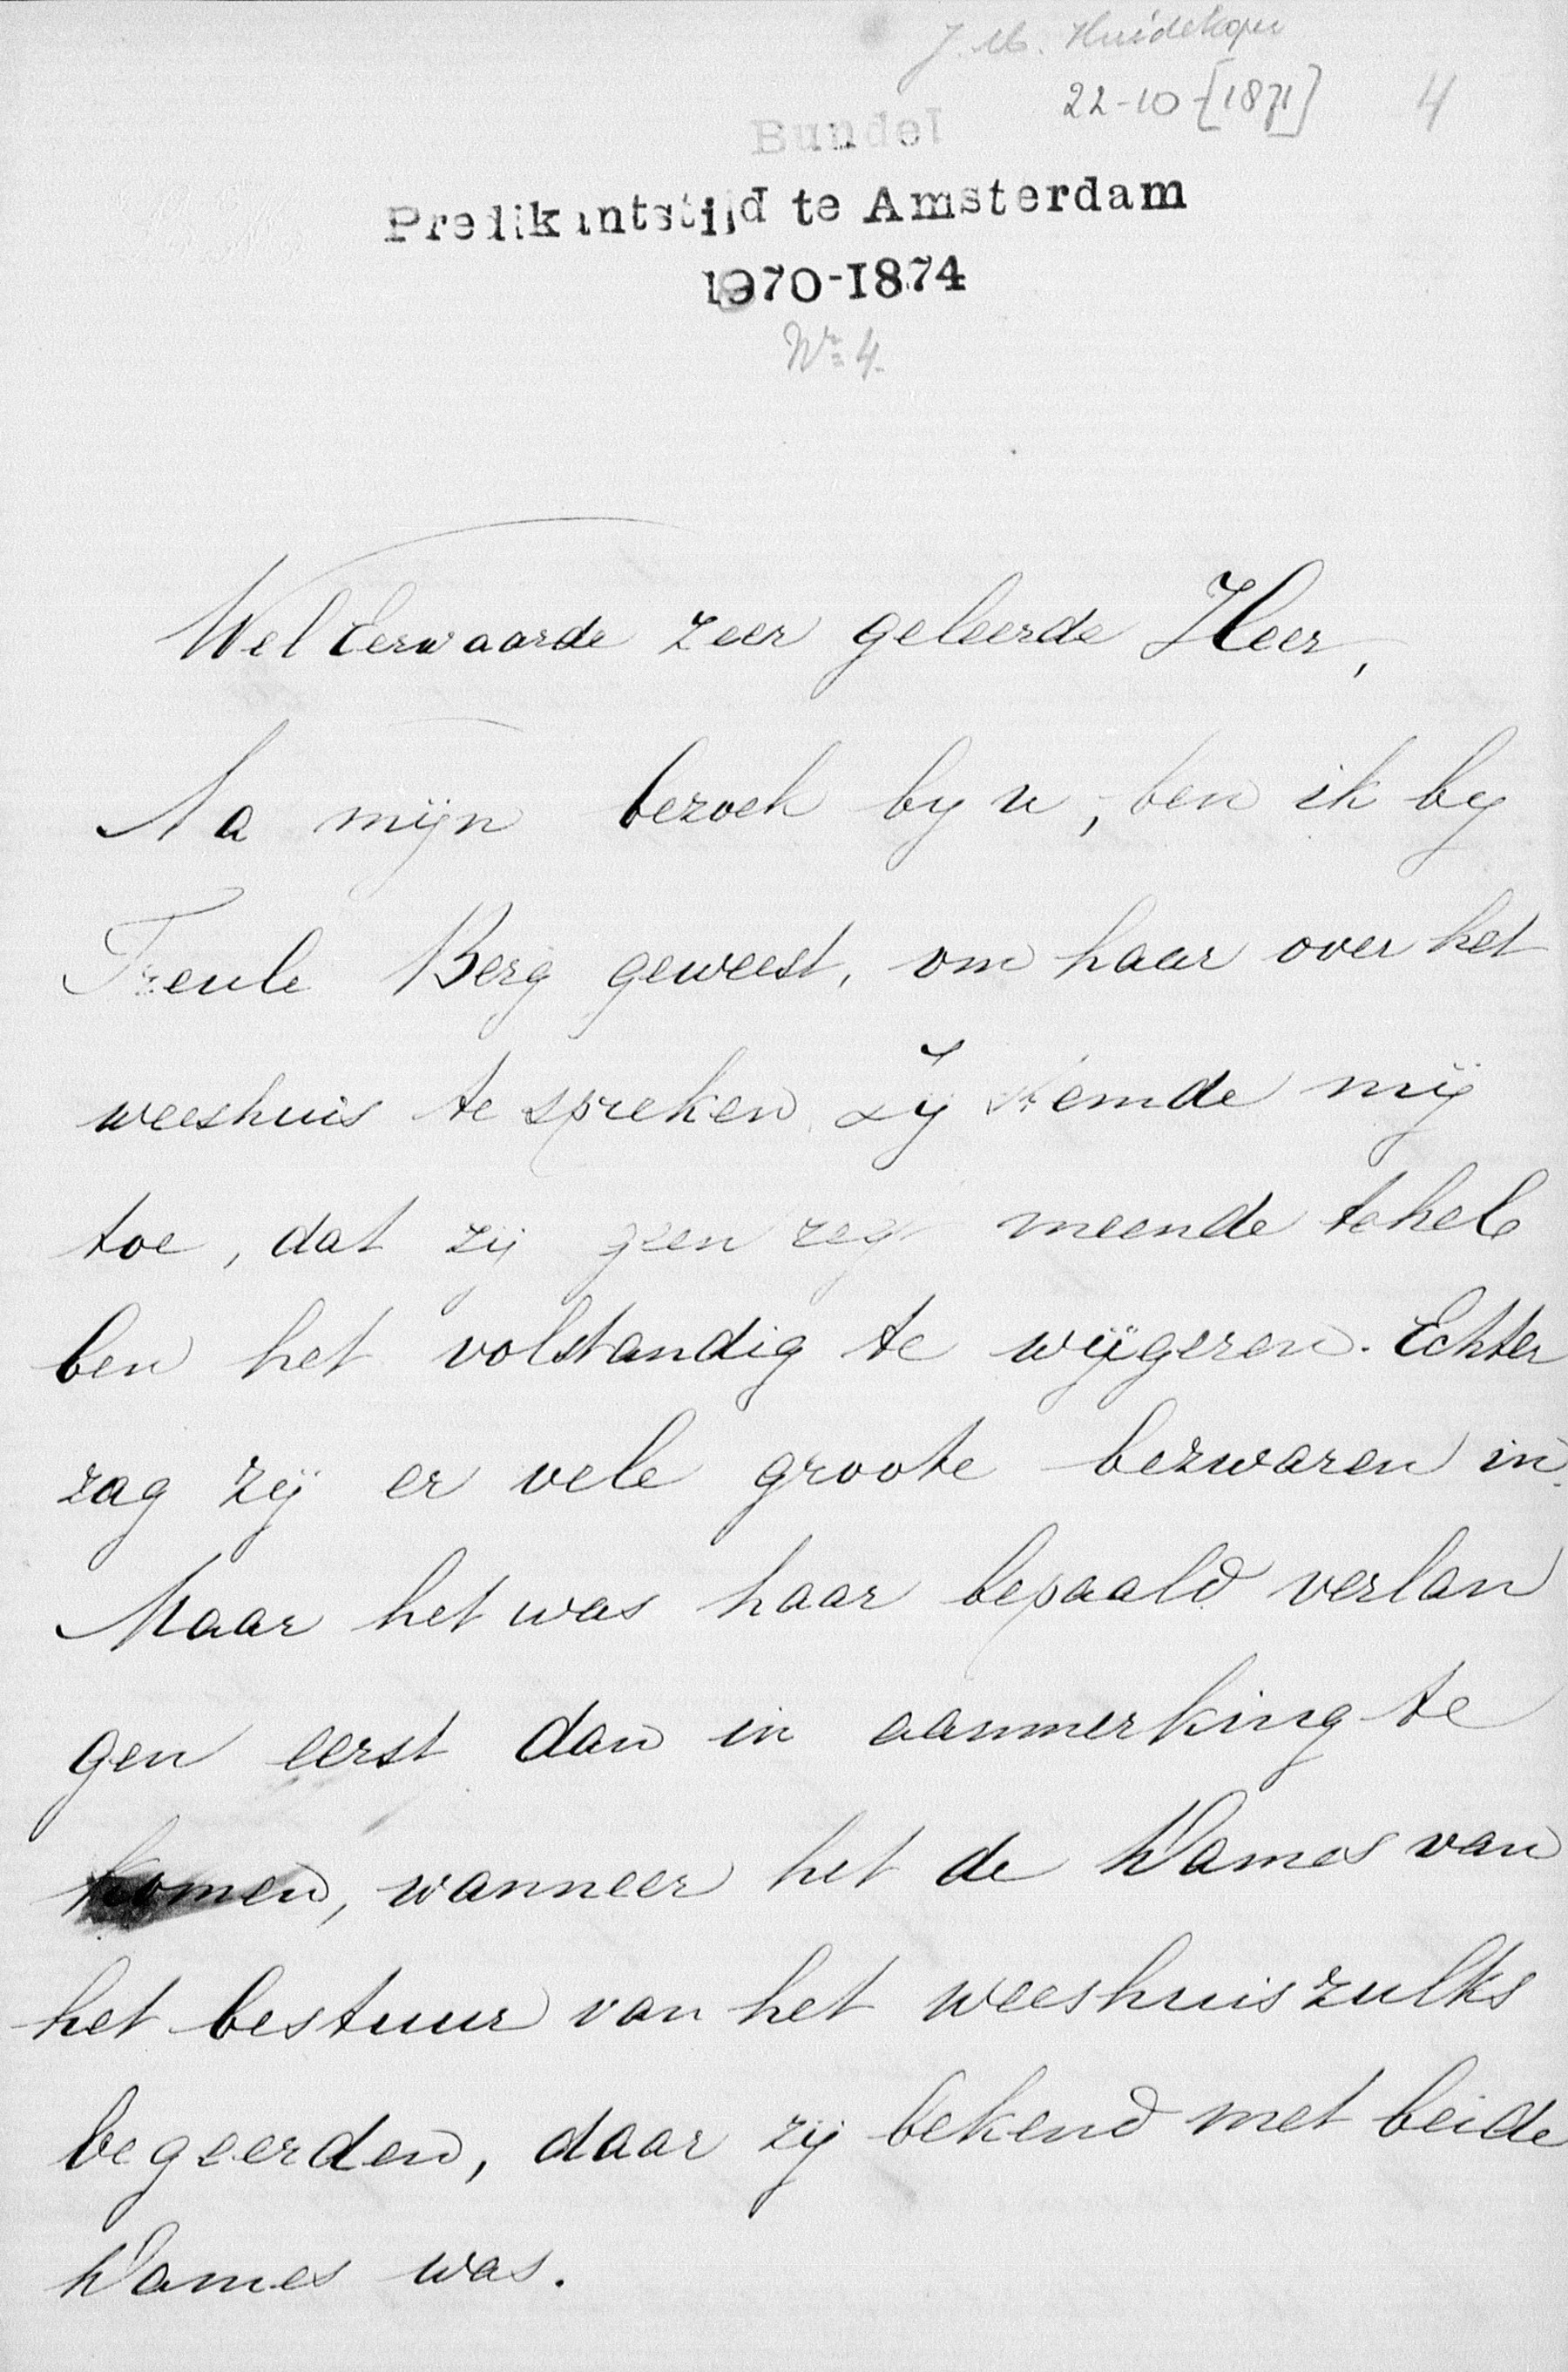 J. M. Huidekoper
22-10-[1871] 4
Bundel
Predikantstijd te Amsterdam
1870-1874
Nr. 4.
Wel Eerwaarde zeer geleerde Heer,
Na mijn bezoek by u, ben ik by
Freule Berg geweest, om haar over het
weeshuis te spreken. Zij stemde mij
toe, dat zij geen regt meende te heb
ben het volstandig te wijgeren. Echter
zag zij er vele groote bezwaren in.
Maar het was haar bepaald verlan
gen eerst dan in aanmerking te
komen, wanneer het de Dames van
het bestuur van het weeshuis zulks
begeerden, daar zij bekend met beide
Dames was.